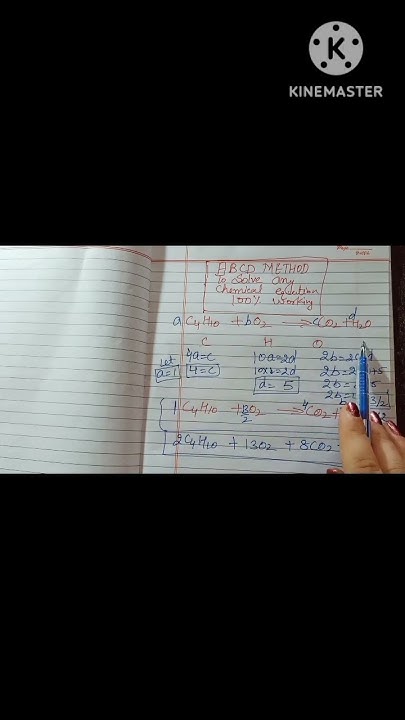 KINEMASTER
ABCD METHOD
To Solve Any
Chemical equation
100% working
a C4H10 + bO2 → CO2 + dH2O
C H O
Let
a=1
4a=c
4=c
10a=2d
10x1=2d
d= 5
2b=2c
2b=2
2b=2
2b=
3/2
1 C4H10 + 13/2 O2 → 4CO2 +
2C4H10 + 13O2 + 8CO2